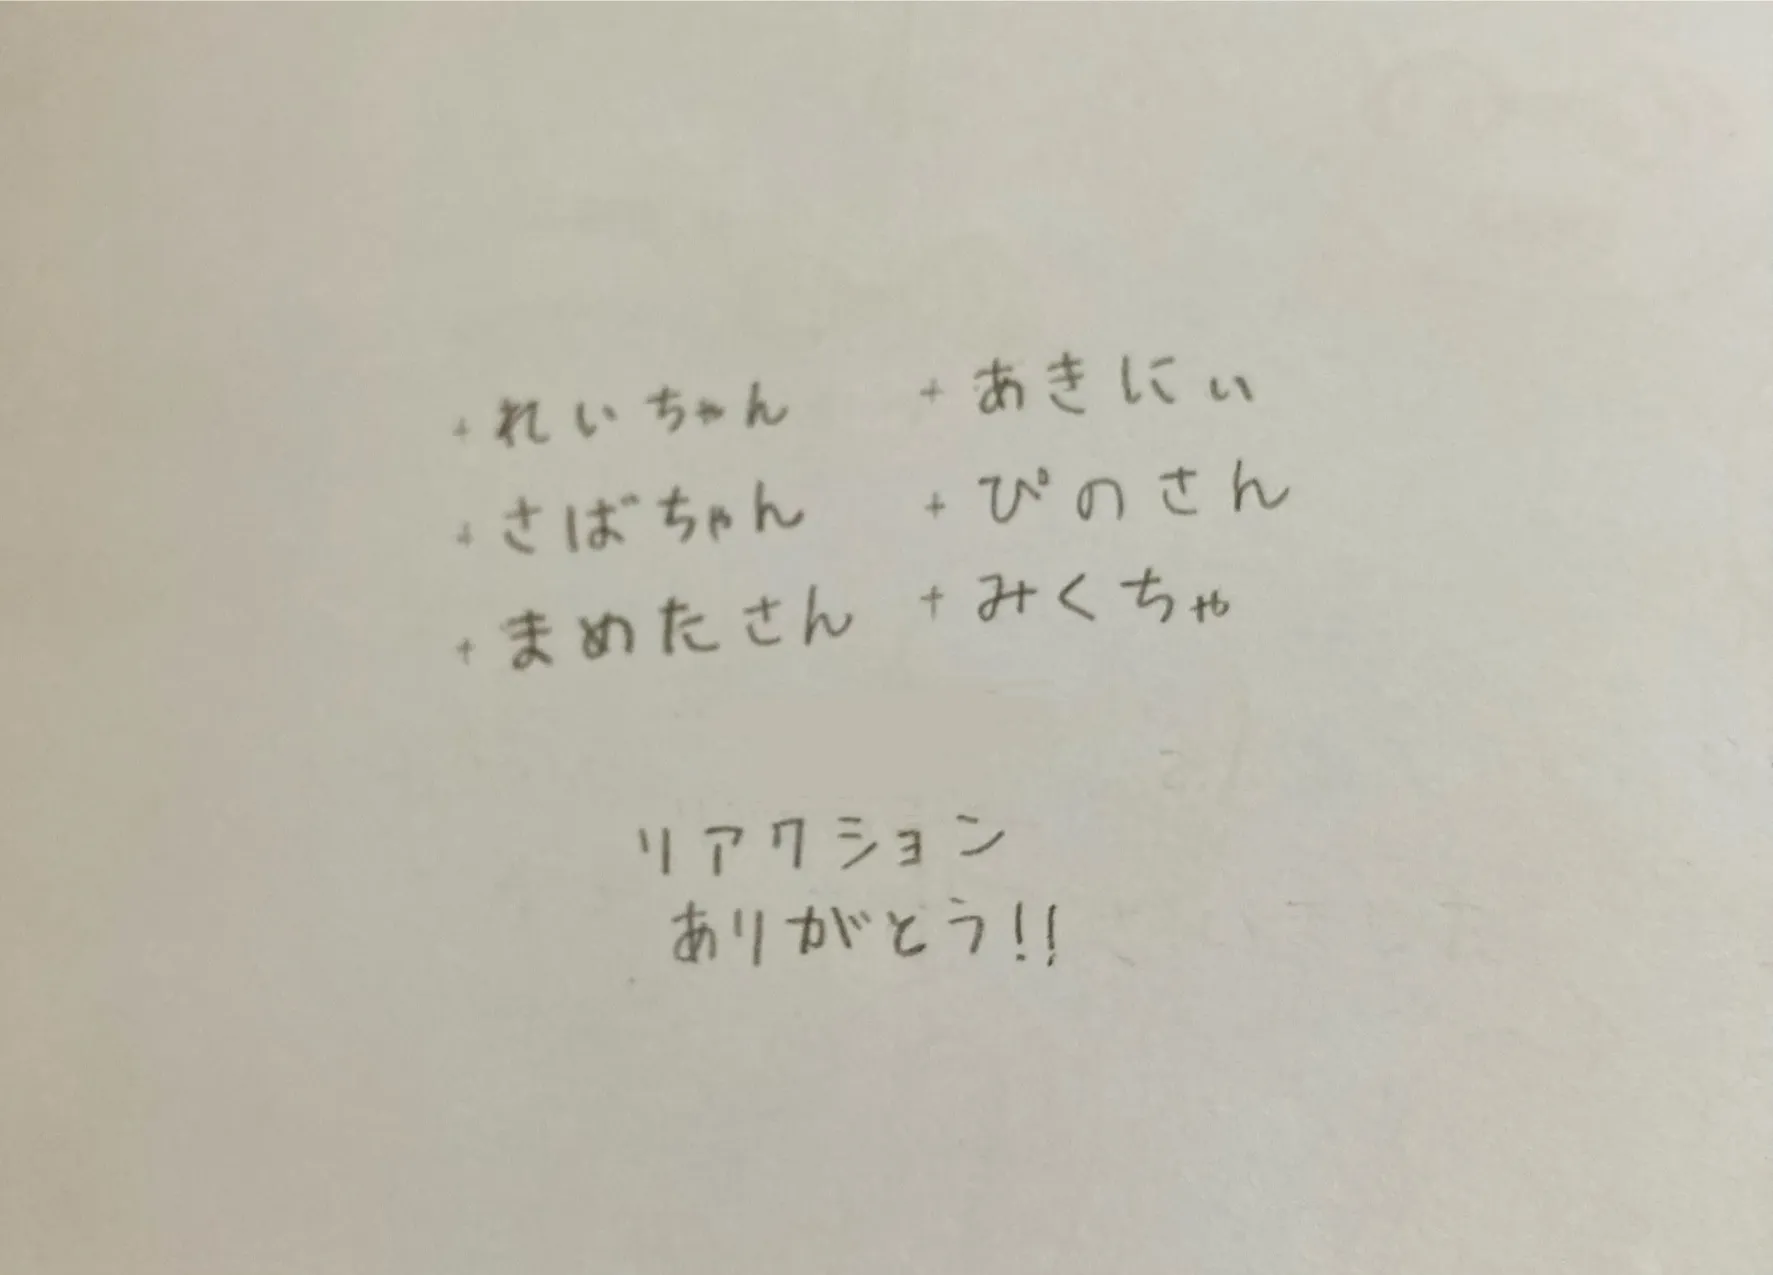 + れいちゃん + あきにぃ
+ さばちゃん + ぴのさん
+ まめたさん + みくちゃ
リアクション
ありがとう!!